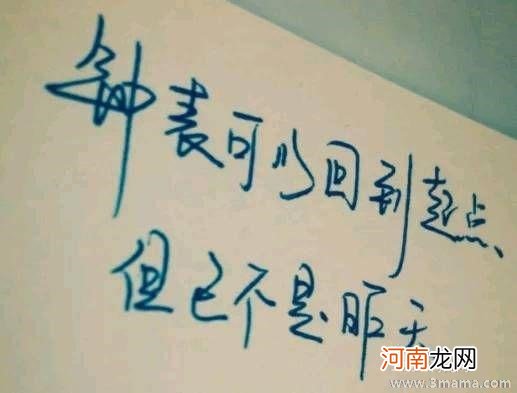 钟表可以回到起点、
但已不是昨天
河南龙网
www.3mama.com